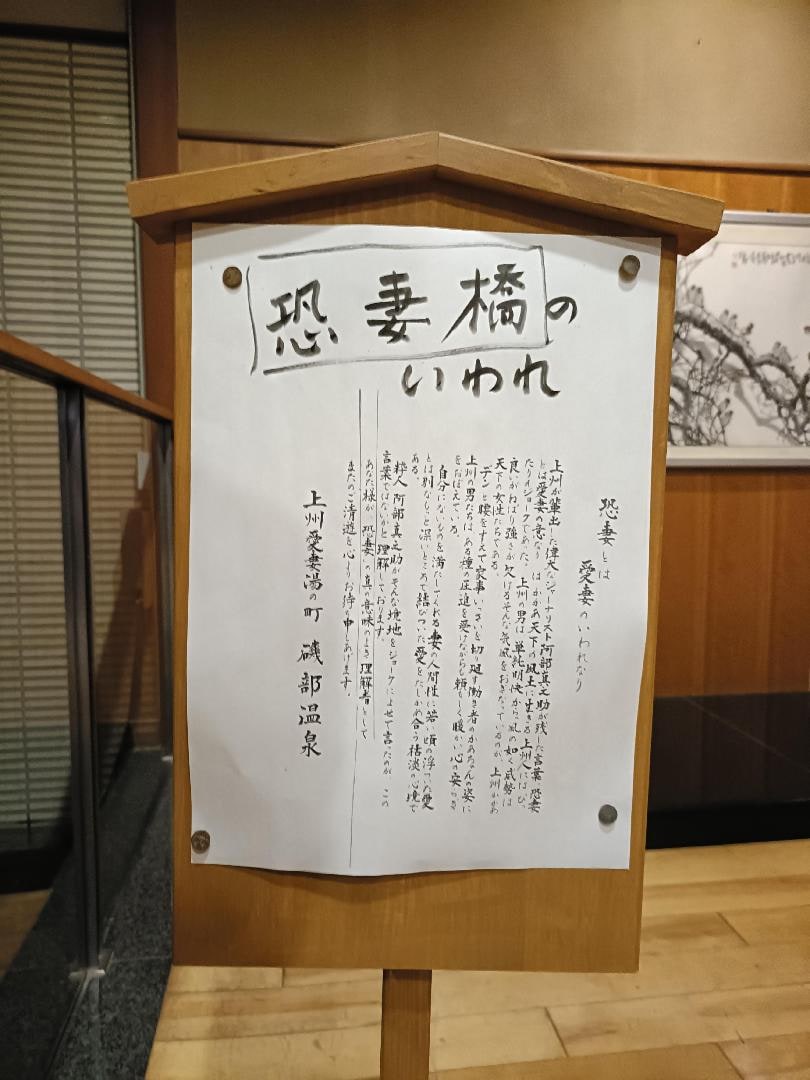 恐妻橋の
いわれ
恐妻とは
愛妻のいわれなり
上州が輩出した偉大なジャーナリスト阿部真之助が残した言葉「恐妻
とは愛妻の意なり」は、かかあ天下の風土に生きる上州人にはぴっ
たりのジョークであった。上州の男は単純明快、からっ風の如く威勢は
良いがねばり強さが欠けるそんな気風をおぎなっているのが、上州かかあ
天下の女性たちである。
デンと腰をすえて家事いっさいを切り廻す働き者のかあちゃんの姿に
上州の男たちは、ある種の圧迫を受けながらも頼もしく暖かい心の安らぎ
をおぼえている。
自分にないものを満たしてくれる妻の人間性に若い頃の浮いた愛
とは別なもっと深いところで結びついた愛をたしかめ合う枯淡の心境で
ある。
粋人阿部真之助がそんな境地をジョークによせて言ったのが、この
言葉ではないかと理解しております。
あなた様が「恐妻」の真の意味のよき理解者として
またのご清遊を心よりお待ち申しあげます。
上州愛妻湯の町 磯部温泉